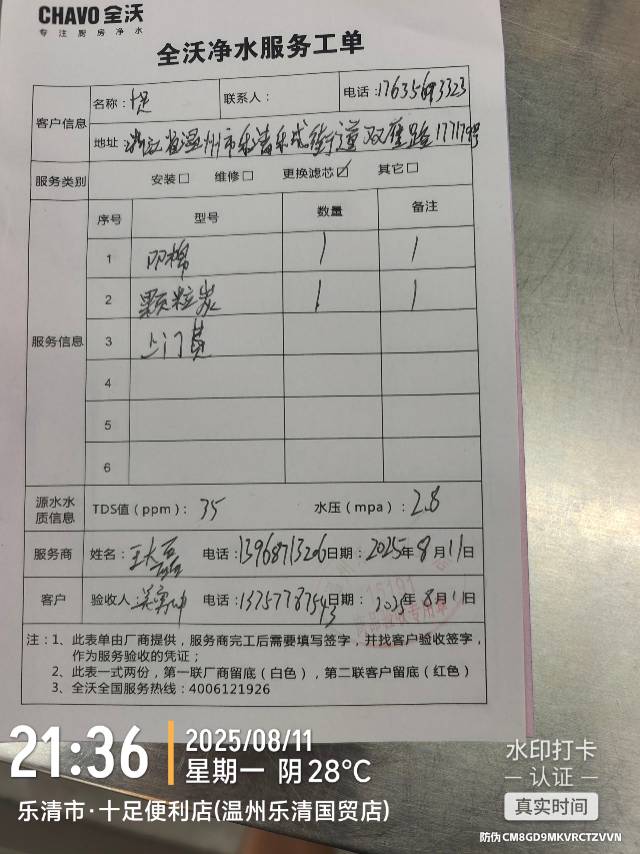 CHAVO 全沃
专 注 厨 房 净 水
全沃净水服务工单
客户信息 名称：十足 联系人： 电话：17635693323
地址 浙江省温州市乐清乐成街道双雁路1717号
服务类别 安装□ 维修□ 更换滤芯☑ 其它□
服务信息 序号 型号 数量 备注
1 PP棉 1 1
2 颗粒炭 1 1
3 上门费
4
5
6
源水水质信息 TDS值（ppm）：35 水压（mpa）：2.8
服务商 姓名：王大磊 电话：13968713206 日期：2025年8月11日
客户 验收人 电话： 日期：2025年8月11日
注：1、此表单由厂商提供，服务商完工后需要填写签字，并找客户验收签字，
作为服务验收的凭证；
2、此表一式两份，第一联厂商留底（白色），第二联客户留底（红色）
3、全沃全国服务热线：4006121926
21:36
2025/08/11
星期一 阴 28℃
乐清市·十足便利店(温州乐清国贸店)
水印打卡
认证
真实时间
防伪 CM8GD9MKVRCTZVVN